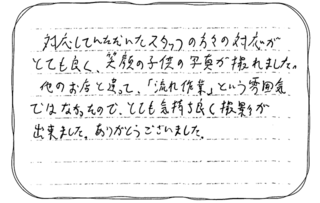 対応していただいたスタッフの方々の対応が
とても良く、笑顔の子供の写真が撮れました。
他のお店と違って、「流れ作業」という雰囲気
ではなかったので、とても気持ち良く撮影が
出来ました。ありがとうございました。